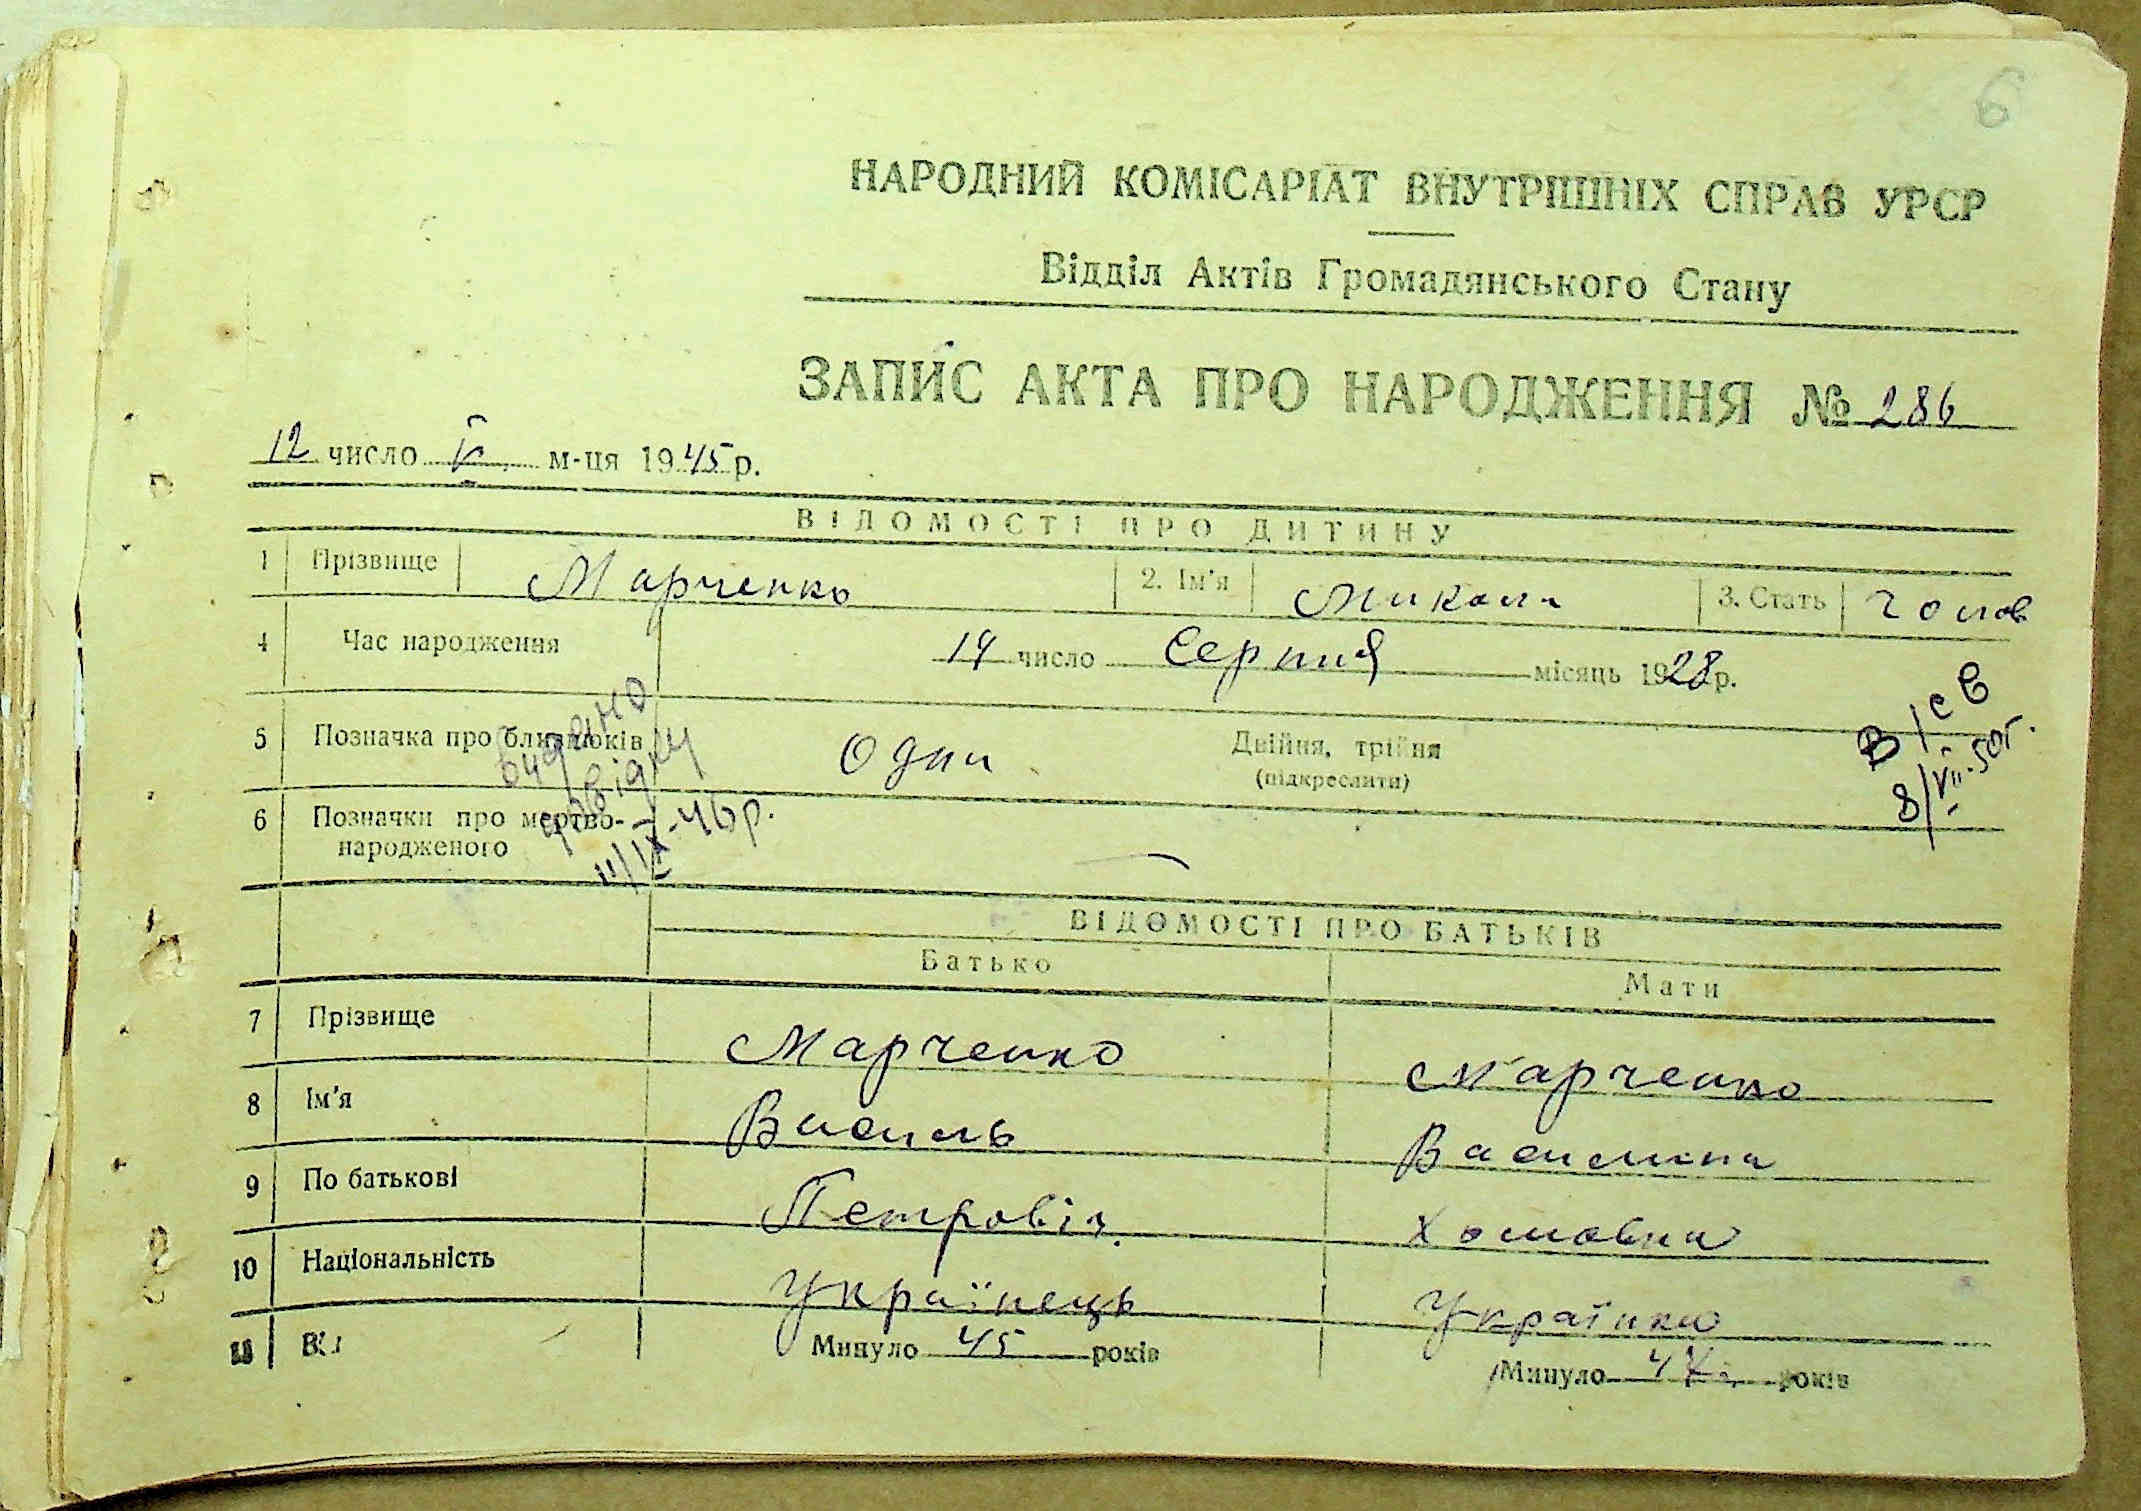 6
НАРОДНИЙ КОМІСАРІАТ ВНУТРІШНІХ СПРАВ УРСР
Відділ Актів Громадянського Стану
ЗАПИС АКТА ПРО НАРОДЖЕННЯ № 286
12 число V м-ця 1945 р.
ВІДОМОСТІ ПРО ДИТИНУ
1 Прізвище Марченко 2. Ім'я Микола 3. Стать чолов
4 Час народження 14 число Серпня місяць 1928 р.
5 Позначка про близнюків Один Двійня, трійня
(підкреслити)
6 Позначки про мертво-
народженого —
видано
довідку
11/IX-46р.
8/VII-50г.
ВІДОМОСТІ ПРО БАТЬКІВ
Батько Мати
7 Прізвище Марченко Марченко
8 Ім'я Василь Василина
9 По батькові Петровіч Хомовна
10 Національність Українець Українка
11 Минуло 45 років Минуло років